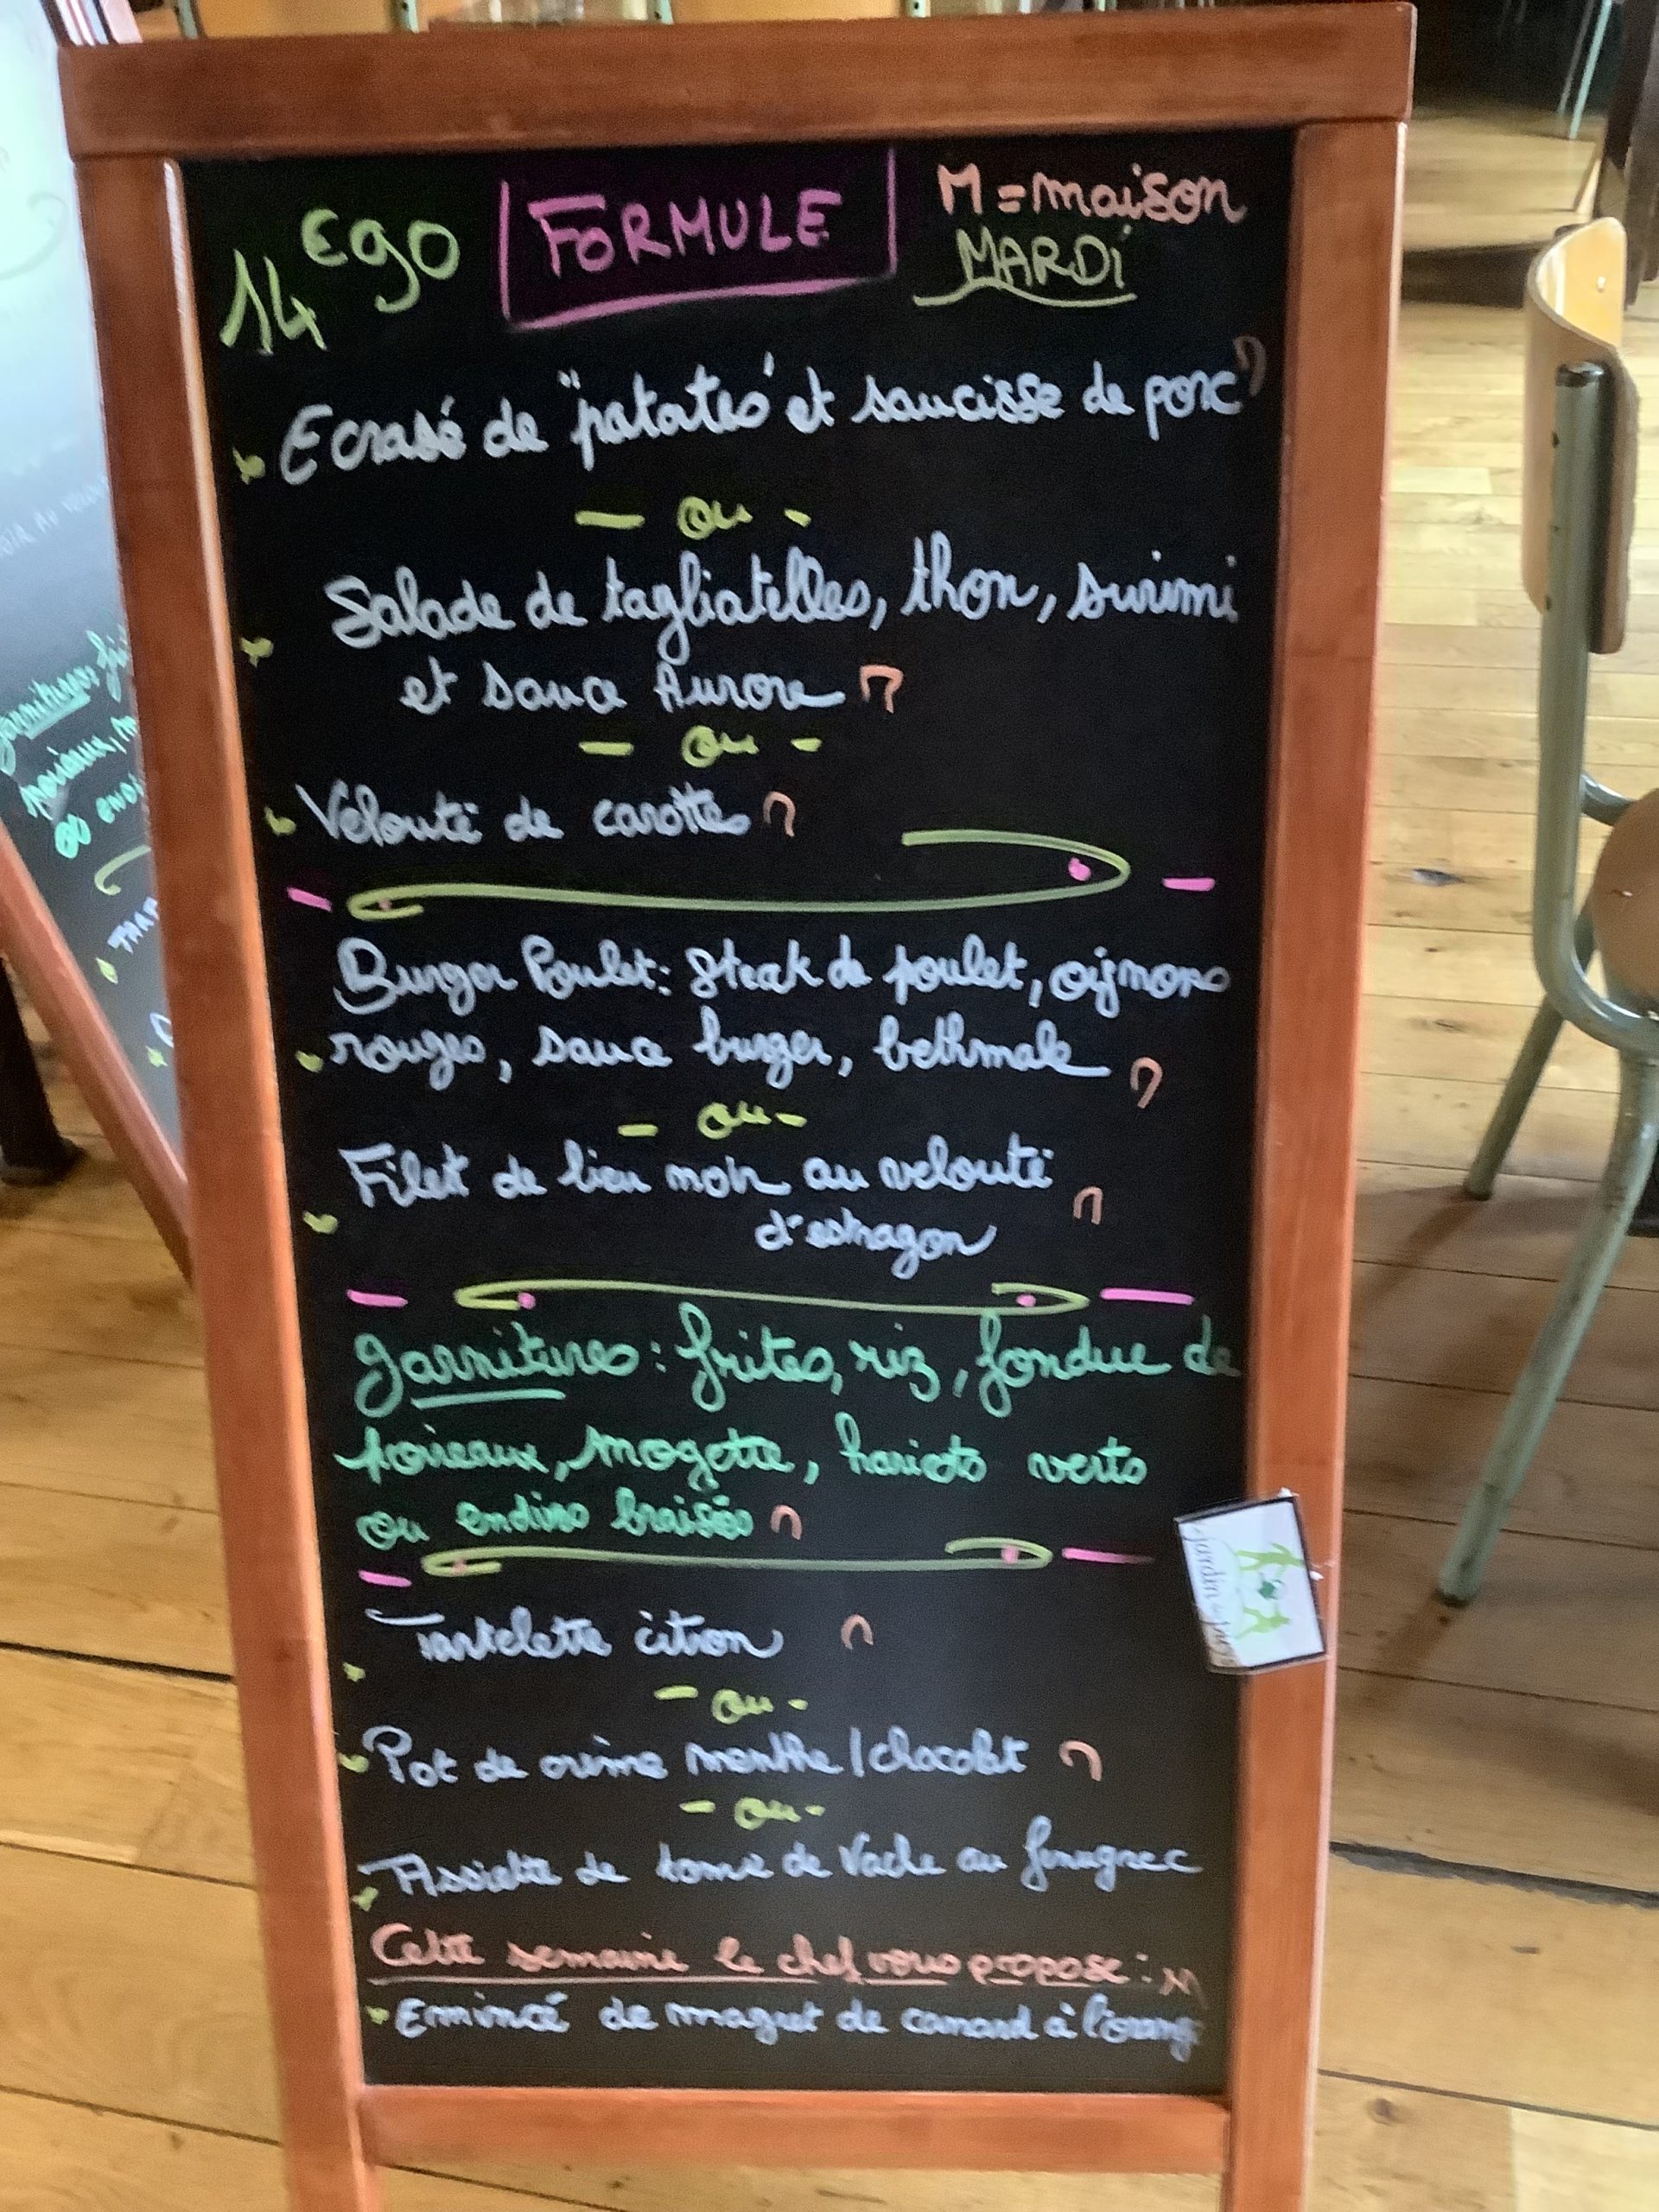 14€90 FORMULE M = maison
MARDi
Ecrasé de "patates" et saucisse de porc M
- ou -
Salade de tagliatelles, thon, surimi
et sauce Aurore M
- ou -
Velouté de carottes M
Burger Poulet: Steak de poulet, oignons
rouges, sauce burger, bethmale M
- ou -
Filet de lieu noir au velouté M
d'estragon
garnitures : frites, riz, fondue de
poireaux, mogette, haricots verts
ou endives braisées M
Tartelette citron M
- ou -
Pot de crème menthe/chocolat M
- ou -
Assiette de tome de Vache au fenugrec
Cette semaine le chef vous propose : M
Emincé de magret de canard à l'orange
garnitures
poireaux,
ou